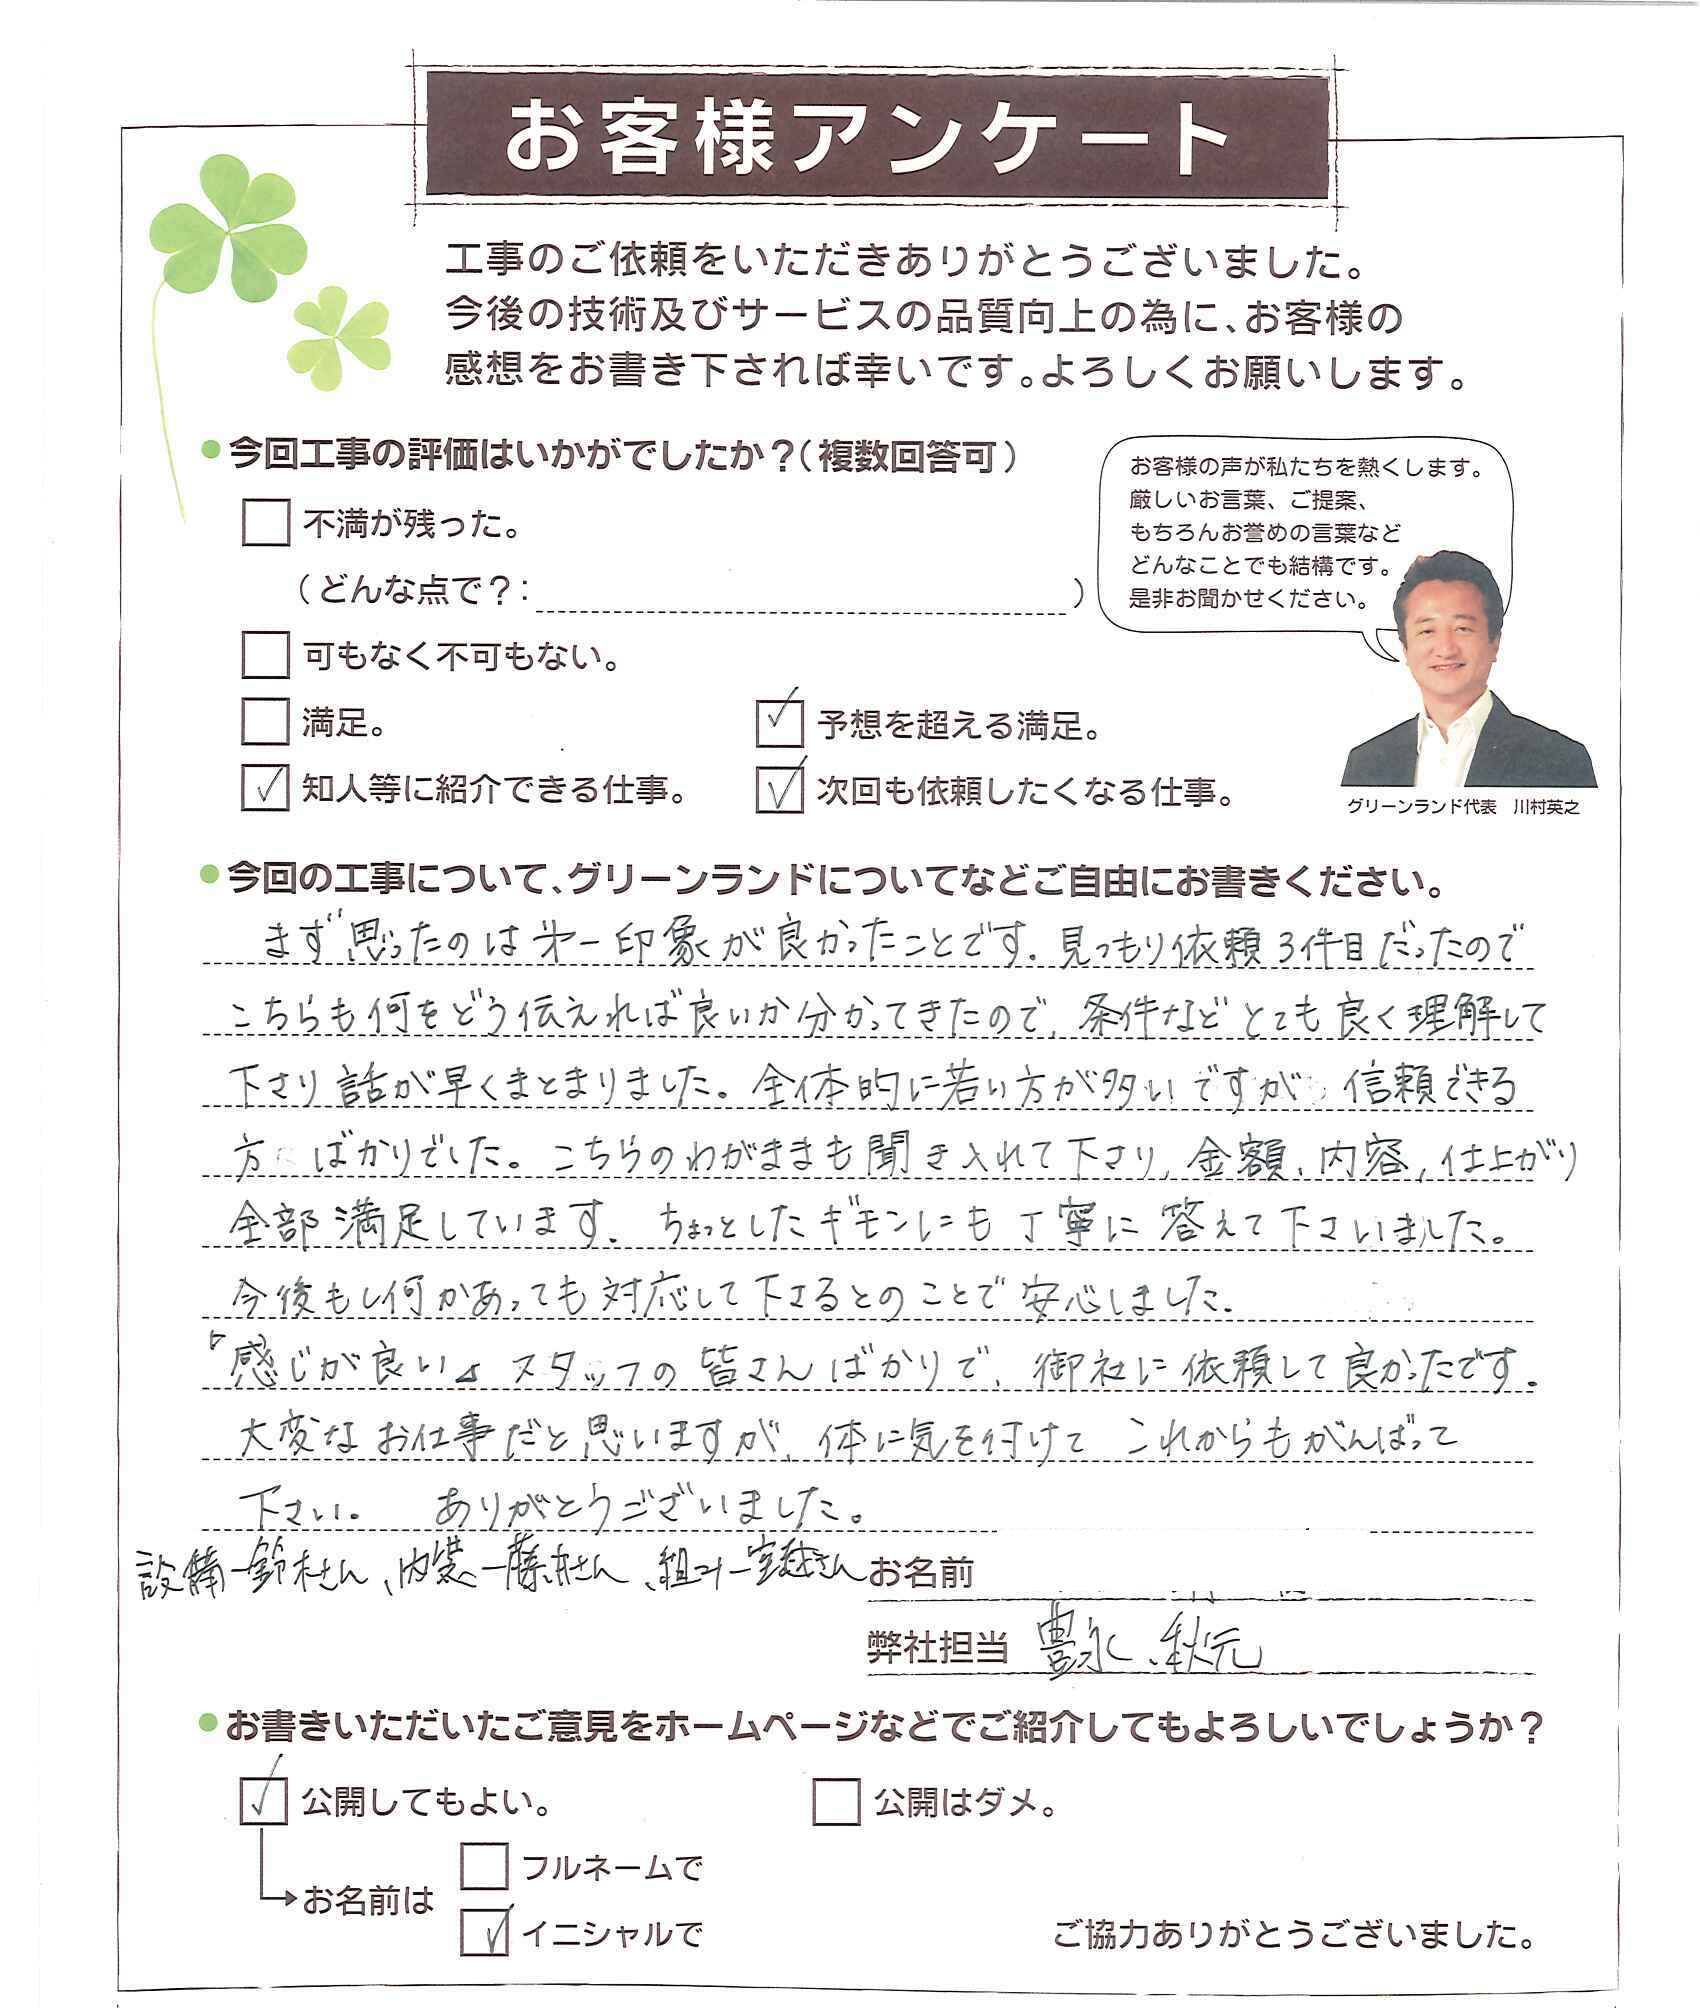 お客様アンケート
工事のご依頼をいただきありがとうございました。
今後の技術及びサービスの品質向上の為に、お客様の
感想をお書き下されば幸いです。よろしくお願いします。
●今回工事の評価はいかがでしたか？（複数回答可）
不満が残った。
（どんな点で？：　）
可もなく不可もない。
満足。
✓ 予想を超える満足。
✓ 知人等に紹介できる仕事。
✓ 次回も依頼したくなる仕事。
お客様の声が私たちを熱くします。
厳しいお言葉、ご提案、
もちろんお誉めの言葉など
どんなことでも結構です。
是非お聞かせください。
グリーンランド代表　川村英之
●今回の工事について、グリーンランドについてなどご自由にお書きください。
まず思ったのは第一印象が良かったことです。見つもり依頼3件目だったので
こちらも何をどう伝えれば良いか分かってきたので、条件などとても良く理解して
下さり話が早くまとまりました。全体的に若い方が多いですが 信頼できる
方ばかりでした。こちらのわがままも聞き入れて下さり、金額、内容、仕上がり
全部満足しています。ちょっとしたギモンにも丁寧に答えて下さいました。
今後もし何かあっても対応して下さるとのことで安心しました。
『感じが良い』スタッフの皆さんばかりで、御社に依頼して良かったです。
大変なお仕事だと思いますが、体に気を付けて これからもがんばって
下さい。 ありがとうございました。
設備－鈴木さん、内装－藤本さん、組コー宝越さん
お名前
弊社担当 豊永、秋元
●お書きいただいたご意見をホームページなどでご紹介してもよろしいでしょうか？
✓ 公開してもよい。
公開はダメ。
→お名前は
フルネームで
✓ イニシャルで
ご協力ありがとうございました。